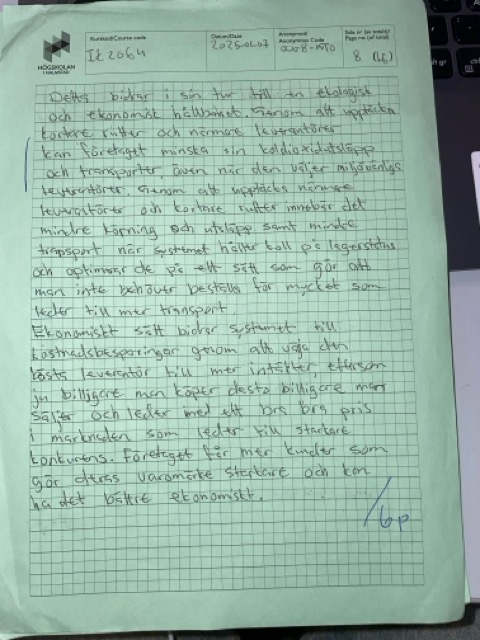 HÖGSKOLAN
I HALMSTAD
Kurskod/Course code
Datum/Date
Anonymkod/
Anonymous Code
Sida nr (av totalt)/
Page no (of total)
IE2064
8
Detta bidrar i sin tur till en ekologisk
och ekonomisk hållbarhet. Genom att upptäcka
kortare rutter och närmare leverantörer
kan företaget minska sin koldioxidutsläpp
och transporter, även när den väljer miljövänliga
leverantörer. Genom att upptäcks närmare
leverantörer och kortare rutter innebär det
mindre körning och utsläpp samt mindre
transport när systemet håller koll på lagerstatus
och optimerar de på ett sätt som gör att
man inte behöver beställa för mycket som
leder till mer transport.
Ekonomiskt sätt bidrar systemet till
kostnadsbesparingar genom att välja den
bästa leverantör till mer intäkter, eftersom
ju billigare man köper desto billigare man
säljer och leder med ett bra bra pris
i marknaden som leder till starkare
konkurrens. Företaget får mer kunder som
gör deras varumärke starkare och kan
ha det bättre ekonomiskt.
/6p
ctrl